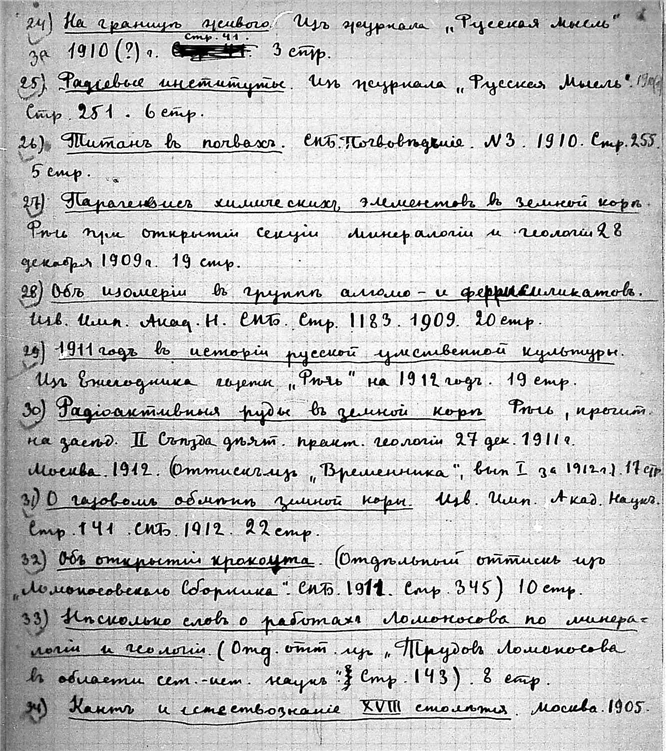 24) На границѣ живого. Изъ журнала „Русская Мысль"
за 1910 (?) г. Стр. 41. 3 стр.
25) Радіевые институты. Изъ журнала „Русская Мысль".
Стр. 251. 6 стр.
26) Титанъ въ почвахъ. СПБ. Почвовѣдѣніе. N 3. 1910. Стр. 255.
5 стр.
27) Парагенезисъ химическихъ элементовъ въ земной корѣ.
Рѣчь при открытіи секціи минералогіи и геологіи 28
декабря 1909 г. 19 стр.
28) Объ изомеріи въ группѣ алюмо- и феррисиликатовъ.
Изв. Имп. Акад. Н. СПБ. Стр. 1183. 1909. 20 стр.
29) 1911 годъ въ исторіи русской умственной культуры.
Изъ Ежегодника газеты „Рѣчь" на 1912 годъ. 19 стр.
30) Радіоактивныя руды въ земной корѣ Рѣчь, прочит.
на засѣд. II Съѣзда дѣят. практ. геологіи 27 дек. 1911 г.
Москва. 1912. (Оттискъ изъ „Временника", вып I за 1912 г.). 17 стр.
31) О газовомъ обмѣнѣ земной коры. Изв. Имп. Акад. Наукъ.
Стр. 141. СПБ. 1912. 22 стр.
32) Объ открытіи крокоита. (Отдѣльный оттискъ изъ
„Ломоносовскаго Сборника". СПБ. 1911. Стр. 345) 10 стр.
33) Нѣсколько словъ о работахъ Ломоносова по минера=
логіи и геологіи. (Отд. отт. изъ „Трудовъ Ломоносова
въ области ест.-ист. наукъ". Стр. 143). 8 стр.
34) Кантъ и естествознаніе XVIII столѣтія. Москва. 1905.